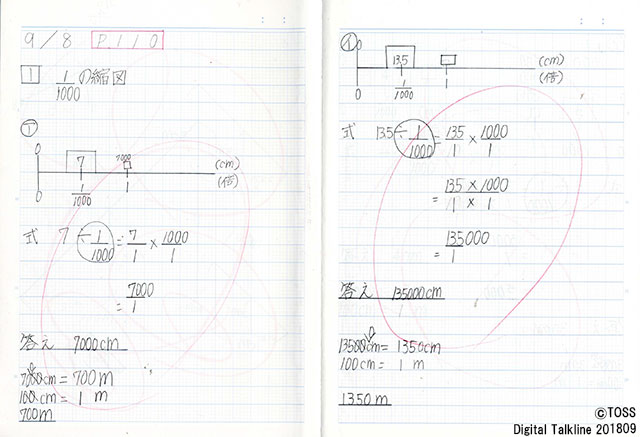 9/8 P.110
1 1/1000の縮図
ア
0 7 7000 (cm)
0 1/1000 1 (倍)
式 7 ÷ 1/1000 = 7/1 × 1000/1
= 7000/1
答え 7000cm
7000cm = 700m
100cm = 1 m
700m
イ
0 135 (cm)
0 1/1000 1 (倍)
式 135 ÷ 1/1000 = 135/1 × 1000/1
= 135×1000/1×1
= 135000/1
答え 135000cm
= 1350cm
100cm = 1 m
1350m
©TOSS
Digital Talkline 201809